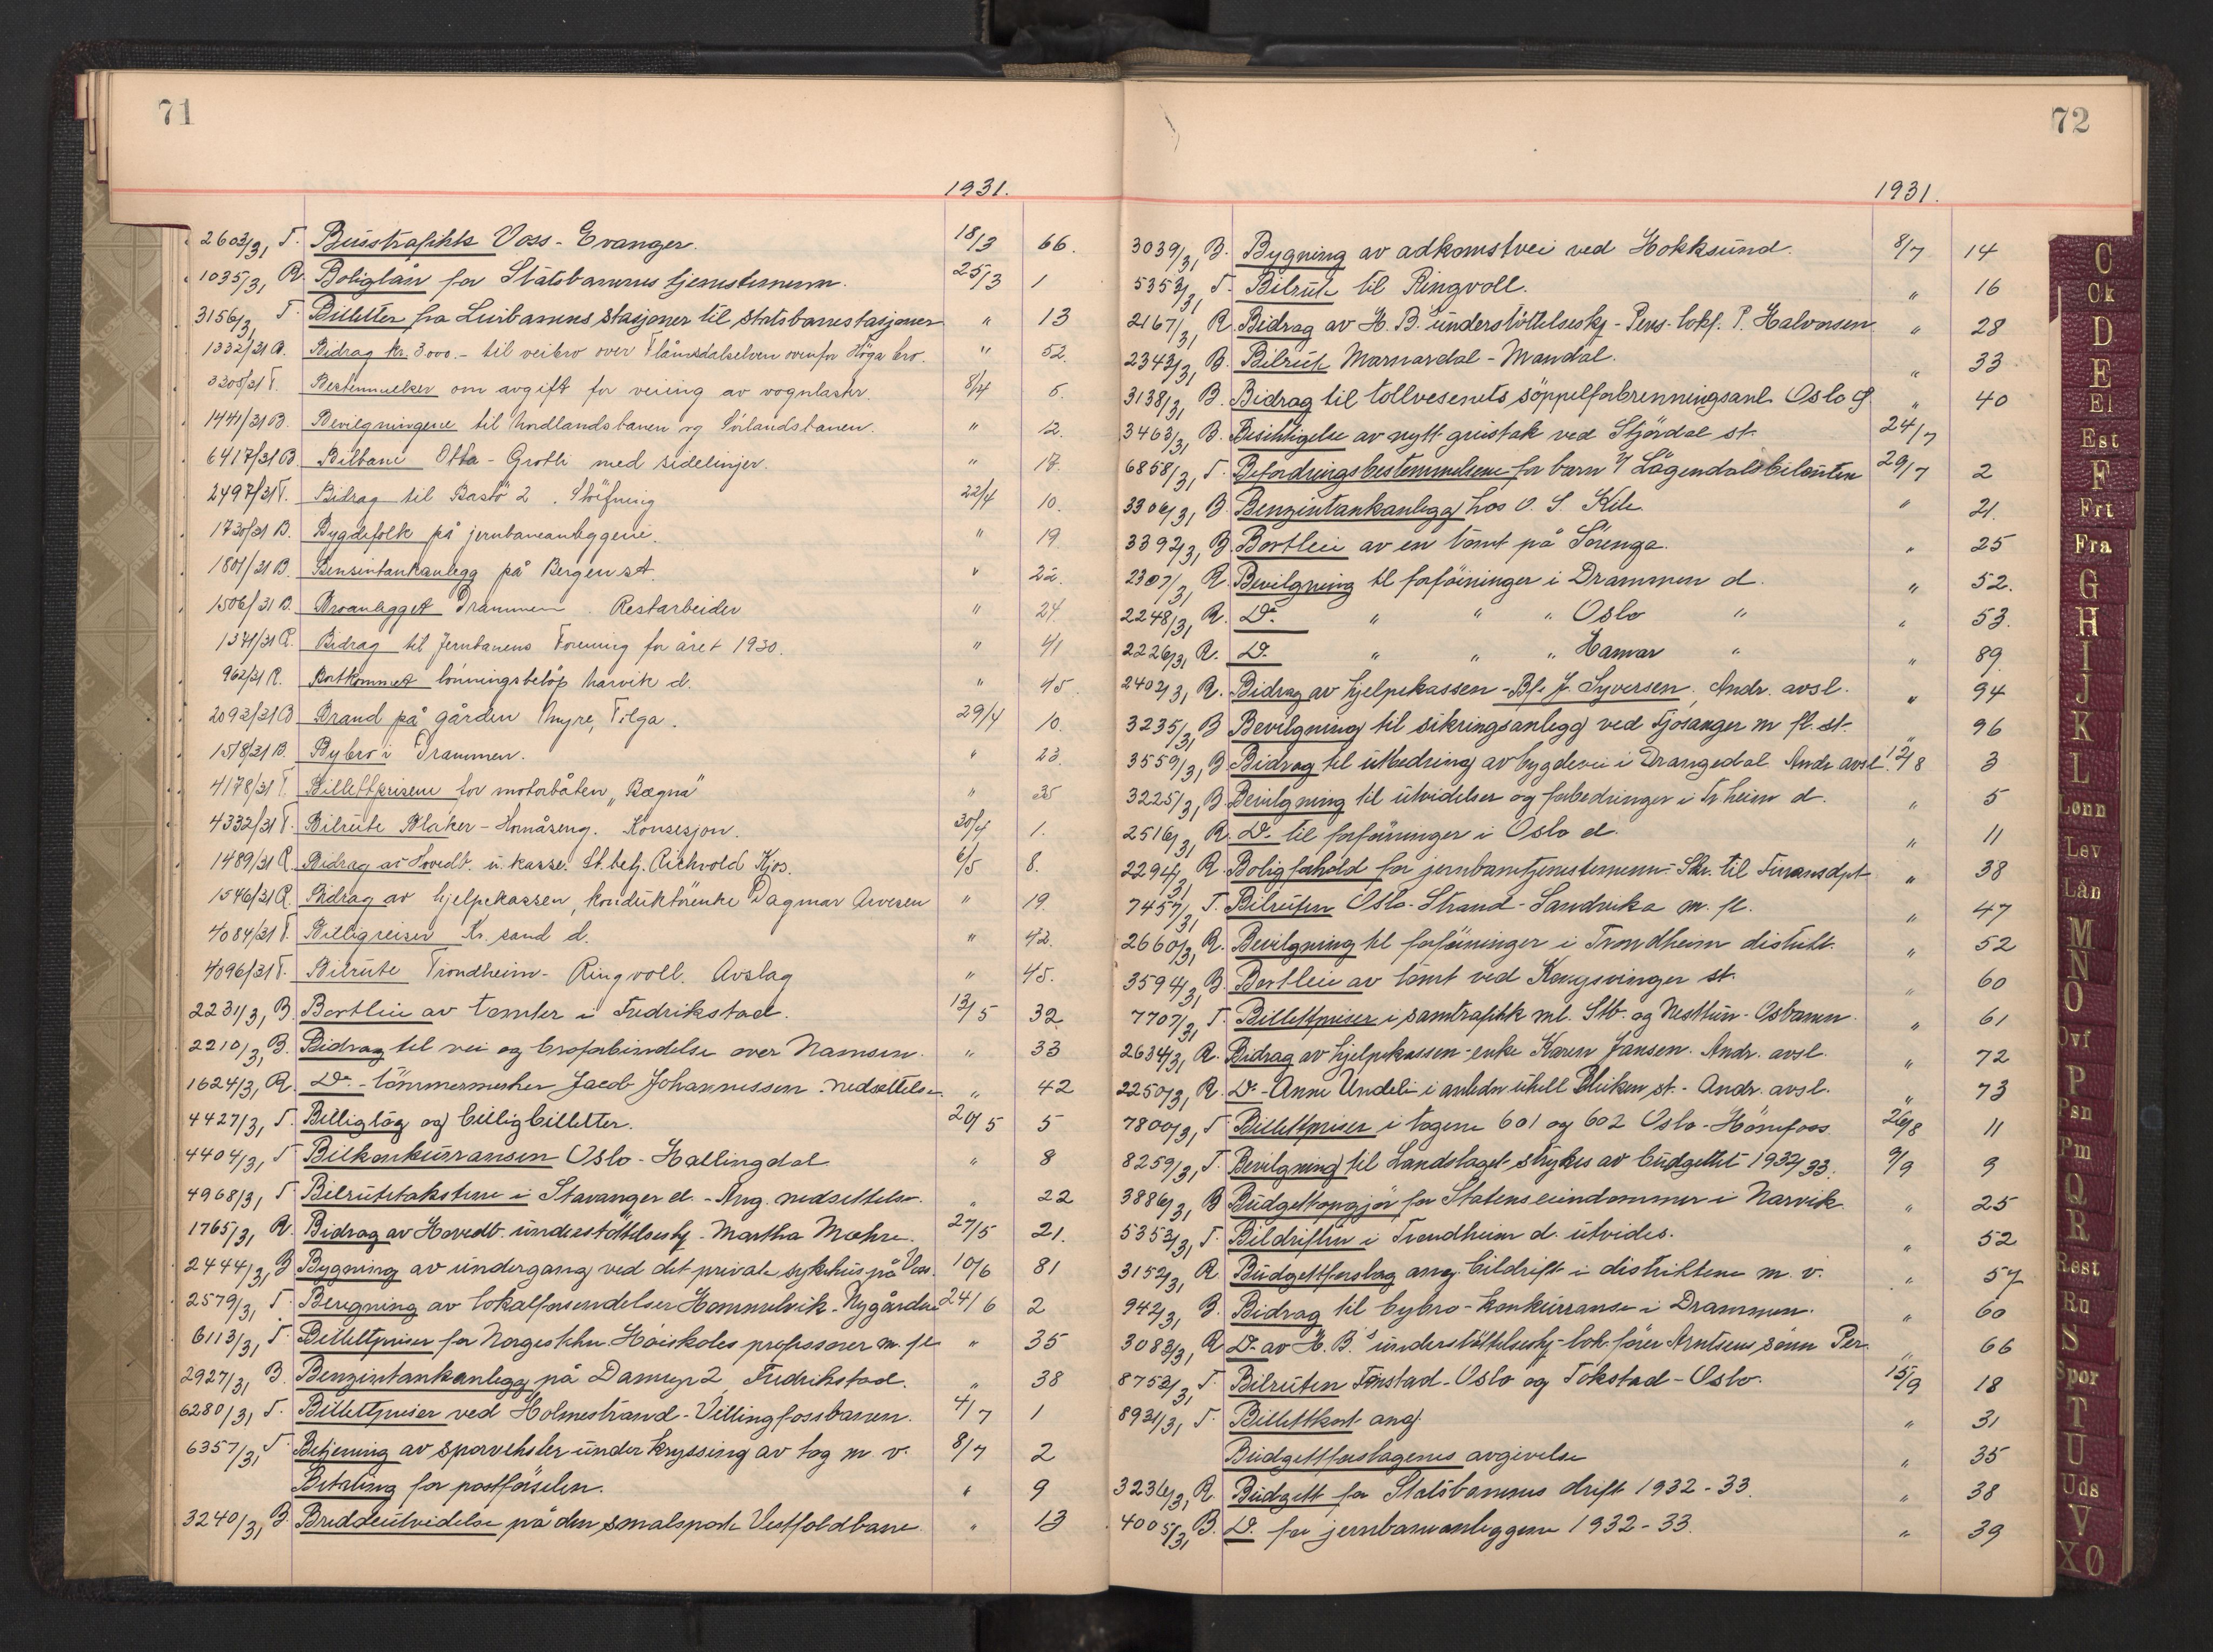 71
1931.
2603/31 T. Busstrafikk Voss - Evanger. 18/3 66.
1035/31 R. Boliglån for Statsbanenes tjenestemenn. 25/3 1
3156/31 T. Billetter fra Lierbanens stasjoner til statsbanestasjoner " 13
1332/31 B. Bidrag kr. 3000.- til veibro over Flåmsdalselven ovenfor Höga bro. " 52.
3305/31 T. Bestemmelser om avgift for veiing av vognlaster. 8/4 6.
1441/31 B. Bevilgningene til Nordlandsbanen og Sörlandsbanen. " 12.
6417/31 B. Bilbane Otta - Grotli med sidelinjer. " 17.
2497/31 T. Bidrag til Bastö 2. Slöifning 22/4 10.
1730/31 B. Bygdefolk på jernbaneanleggene. " 19
1801/31 B. Bensintankanlegg på Bergen st. " 22.
1506/31 B. Broanlegget Drammen. Restarbeider " 24.
1371/31 R. Bidrag til Jernbanens Forening for året 1930. " 41
962/31 R. Bortkommet lönningsbelöp Narvik d. " 45.
2092/31 B Brand på gården Myre, Tilga. 29/4 10.
1518/31 B. Bybro i Drammen. " 23.
4178/31 T. Billettprisene for motorbåten „Bægna" " 35
4332/31 T. Bilrute Blaker - Hornåseng. Konsesjon. 30/4 1.
1489/31 R. Bidrag av Hovedb. u. kasse. St.betj. Richvold Kjos. 6/5 8.
1546/31 R. Bidrag av hjelpekassen, konduktörenke Dagmar Arvesen " 19
4084/31 T. Billigreiser Kr. sand d. " 42.
4096/31 T. Bilrute Trondheim - Ringvoll. Avslag " 45.
2231/31 B. Bortleie av tomter i Fredrikstad. 13/5 32
2210/31 B. Bidrag til vei og broforbindelse over Namsen. " 33
1624/31 R. Do. - tömmermerker Jacob Johannessen. nedsettelse. " 42
4427/31 T. Billigtog og billigbilletter. 20/5 5
4404/31 T Bilkonkurransen Oslo - Hallingdal " 8
4968/31 T Bilrutetakstene i Stavanger d. - Ang. nedsettelse. " 22
1765/31 R. Bidrag av Hovedb. understöttelseskj. - Martha Mæhre. 27/5 21.
2444/31 B Bygning av undergang ved det private sykehus på Voss. 10/6 81
2579/31 T. Beregning av lokalforsendelser Hommelvik - Nygården 24/6 2
6113/31 T. Billettpriser for Norges tekn. Höiskoles professorer m. fl. " 35
2927/31 B. Benzintankanlegg på Damyr 2 Fredrikstad. " 38
6280/31 T. Billettpriser ved Holmestrand - Vittingfossbanen. 4/7 1
6357/31 T. Betjening av sporveksler under kryssing av tog m. v. 8/7 2
Betaling for postförselen. " 9
3240/31 B. Breddeutvidelse på den smalsporte Vestfoldbane. " 13
72
1931.
3039/31 B. Bygning av adkomstvei ved Hokksund. 8/7 14
5353/31 T. Bilrute til Ringvoll. " 16
2167/31 R. Bidrag av H. B. understöttelseskj. - Pens. lokf. P. Halvorsen. " 28
2343/31 B. Bilrute Marnardal - Mandal. " 33
3138/31 B. Bidrag til tollvesenets söppelforbrenningsanl. Oslo Ø " 40
3463/31 B. Besiktigelse av nytt grustak ved Stjördal st. 24/7
6858/31 T. Befordringsbestemmelsene for barn i/ Lågendalsbilruten 29/7 2
3306/31 B. Benzintankanlegg hos O. S. Kile " 21.
3392/31 B Bortleie av en tomt på Sörenga. " 25
2307/31 R. Bevilgning til forföininger i Drammen d. " 52.
2248/31 R. Do. " " " Oslo " " 53.
2226/31 R. Do. " " " Hamar " " 89.
2402/31 R. Bidrag av hjelpekassen - Bf. J. Syversen, Andr. avsl. " 94
3235/31 B Bevilgning til sikringsanlegg ved Fjösanger m fl. st. " 96
3559/31 B Bidrag til utbedring av bygdevei i Drangedal. Andr. avsl. 12/8 3
3225/31 B Bevilgning til utvidelser og forbedringer i Tr.heim d. " 5
2516/31 R. Do. til forföininger i Oslo d. " 11
2294/31 R. Boligforhold for jernbanetjenestemenn - Skr. til Finansdpt. " 38
7457/31 T. Bilruten Oslo - Strand - Sandvika m. fl. " 47
2660/31 R. Bevilgning til forföininger i Trondheim distrikt. " 52
3594/31 B. Bortleie av tomt ved Kongsvinger st. " 60
7707/31 T. Billettpriser i samtrafikk ml. Stb. og Nesttun - Osbanen. " 61
2634/31 R. Bidrag av hjelpekassen - enke Karen Jansen. Andr. avsl. " 72
2250/31 R. Do - Anne Undeli i anledn. uhell Bleiken st. - Andr. avsl. " 73
7800/31 T. Billettpriser i togene 601 og 602 Oslo - Hönefoss 26/8 11
8259/31 T. Bevilgning til Landslaget strykes av budgettet 1932/33. 9/9 9
3886/31 B Budgettoppgjör for Statens eiendommer i Narvik. " 25
5353/31 T. Bildriften i Trondheim d. utvides. " 52
3152/31 R. Budgettforslag ang. bildrift i distriktene m. v. " 57
942/31 B. Bidrag til bybro - konkurranse i Drammen. " 60
3083/31 R Do. av H. B.s understöttelseskj - lok.förer Arntsens sönn Per. " 66
8752/31 T. Bilruten Finstad - Oslo og Tokstad - Oslo. 15/9 18
8931/31 T. Billettkort ang. " 31
Budgettforslagenes avgivelse " 35
3236/31 R. Budgett for Statsbanenes drift 1932 - 33. " 38
4005/31 B. Do. for jernbaneanleggene 1932 - 33. " 39
C
Ck
D
E
El
Est
F
Frt
Fra
G
H
I
J
K
L
Lønn
Lev
Lån
M
N
O
Ovf
P
Psn
Pm
Q
R
Rest
Ru
S
Spor
T
U
Uds
V
XØ